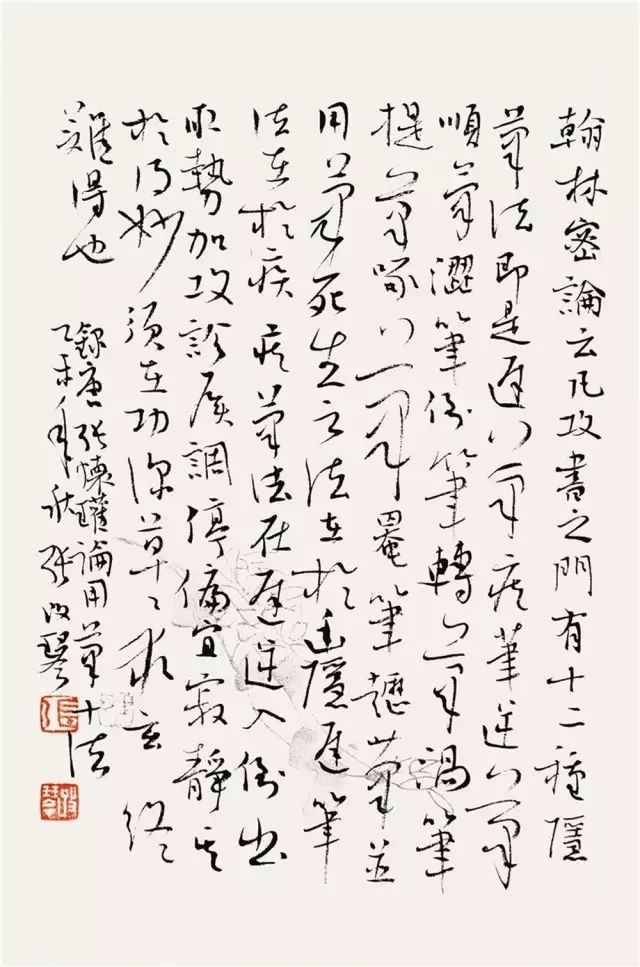 翰林密論云凡攻書之門有十二種隱
筆法即是遲筆疾筆逆筆
順筆澀筆倒筆轉筆渦筆
提筆啄筆罨筆趯筆並
用筆死生之法在於幽隱遲筆
法在於疾疾筆法在遲逆入倒出
取勢加攻診候調停偏宜寂靜其
於得妙須在功深草〻求玄終
難得也
錄唐張懷瓘論用筆十法
乙未年秋張改琴
張
改琴